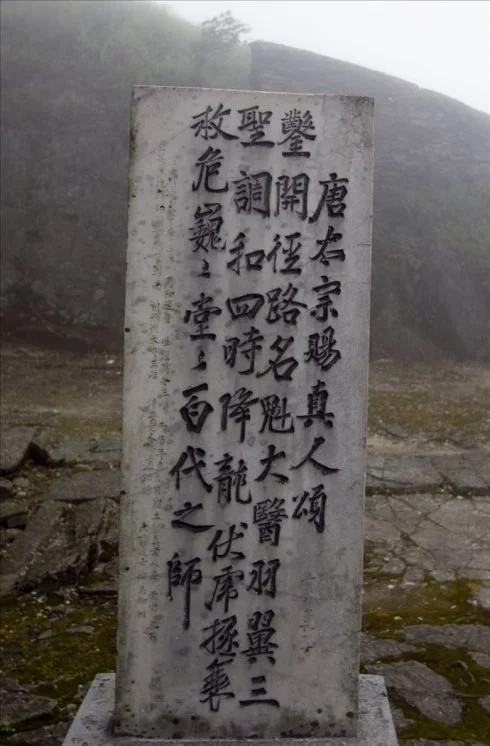 唐太宗賜真人頌
鑿開徑路名魁大醫羽翼三
聖調和四時降龍伏虎拯衰
救危巍〻堂〻百代之師